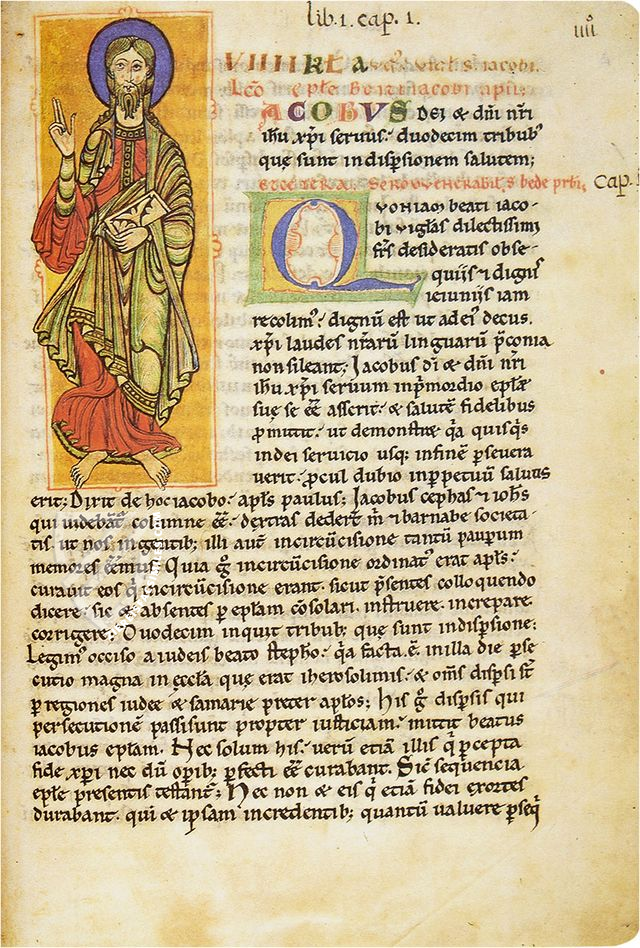 lib. 1. cap. 1.
iiii
VIIII kła
Lc̄o ep̄łe Beati iacobi apłi;
IACOBUS Dei & dn̄i nr̄i
ihu xp̄i servus. duodecim tribub;
que sunt in disp̄sionem salutem;
venerabilis bede prb̄i; Cap.
QUONIAM beati iaco-
bi vigłas dilectissimi
fr̄s desideratis obse-
quiis & dignis
ieiuniis iam
recolim᾽. dignū est ut ad ei᾽ decus.
xp̄i laudes nr̄arū linguarū p̄conia
non sileant; Iacobus dī & dn̄i nr̄i
ihu xp̄i servum in p̄mordio ep̄łe
sue se ēē asserit. & salutē fidelibus
p̄mittit. ut demonstret q̄a quisq̄s
in dei servicio usq; in finē p̄severa
verit. p̄cul dubio in p̄petuū salvus
erit; Dixit de hoc iacobo. apłs paulus; Iacobus cephas & ioh̄s
qui videbant᾽ columne ēē. dextras dedert̄ m̄ & barnabe societa-
tis. ut nos in gentib; illi aut̄ in circūcisione tantū paupum
memores ēēmus; Quia ḡ in circūcisione ordinat᾽ erat apłs.
curavit eos q̄ in circūcisione erant. sicut p̄sentes colloquendo
dicere. sic & absentes p ep̄łam cōsolari. instruere. increpare.
corrigere; Duodecim inquit tribub; que sunt in disp̄sione;
Legim᾽ occiso a iudeis beato stepho. q̄a facta ē. in illa die p̄se
cutio magna in ecc̄ła que erat iherosolimis. & om̄s disp̄si st̄
p regiones iudee & samarie preter apłos; His ḡ disp̄sis qui
persecutionē passi sunt propter iusticiam. mittit beatus
iacobus ep̄łam. Nec solum his. verū etiā illis q̄ p̄cepta
fide xp̄i nec dū opib; p̄fecti ēē curabant. Sic̄ sequencia
ep̄łe presentis testant᾽; Nec non & eis q̄ etiā fidei exortes
durabant. qui & ipsam in credentib; quantū valuere p̄seq̄